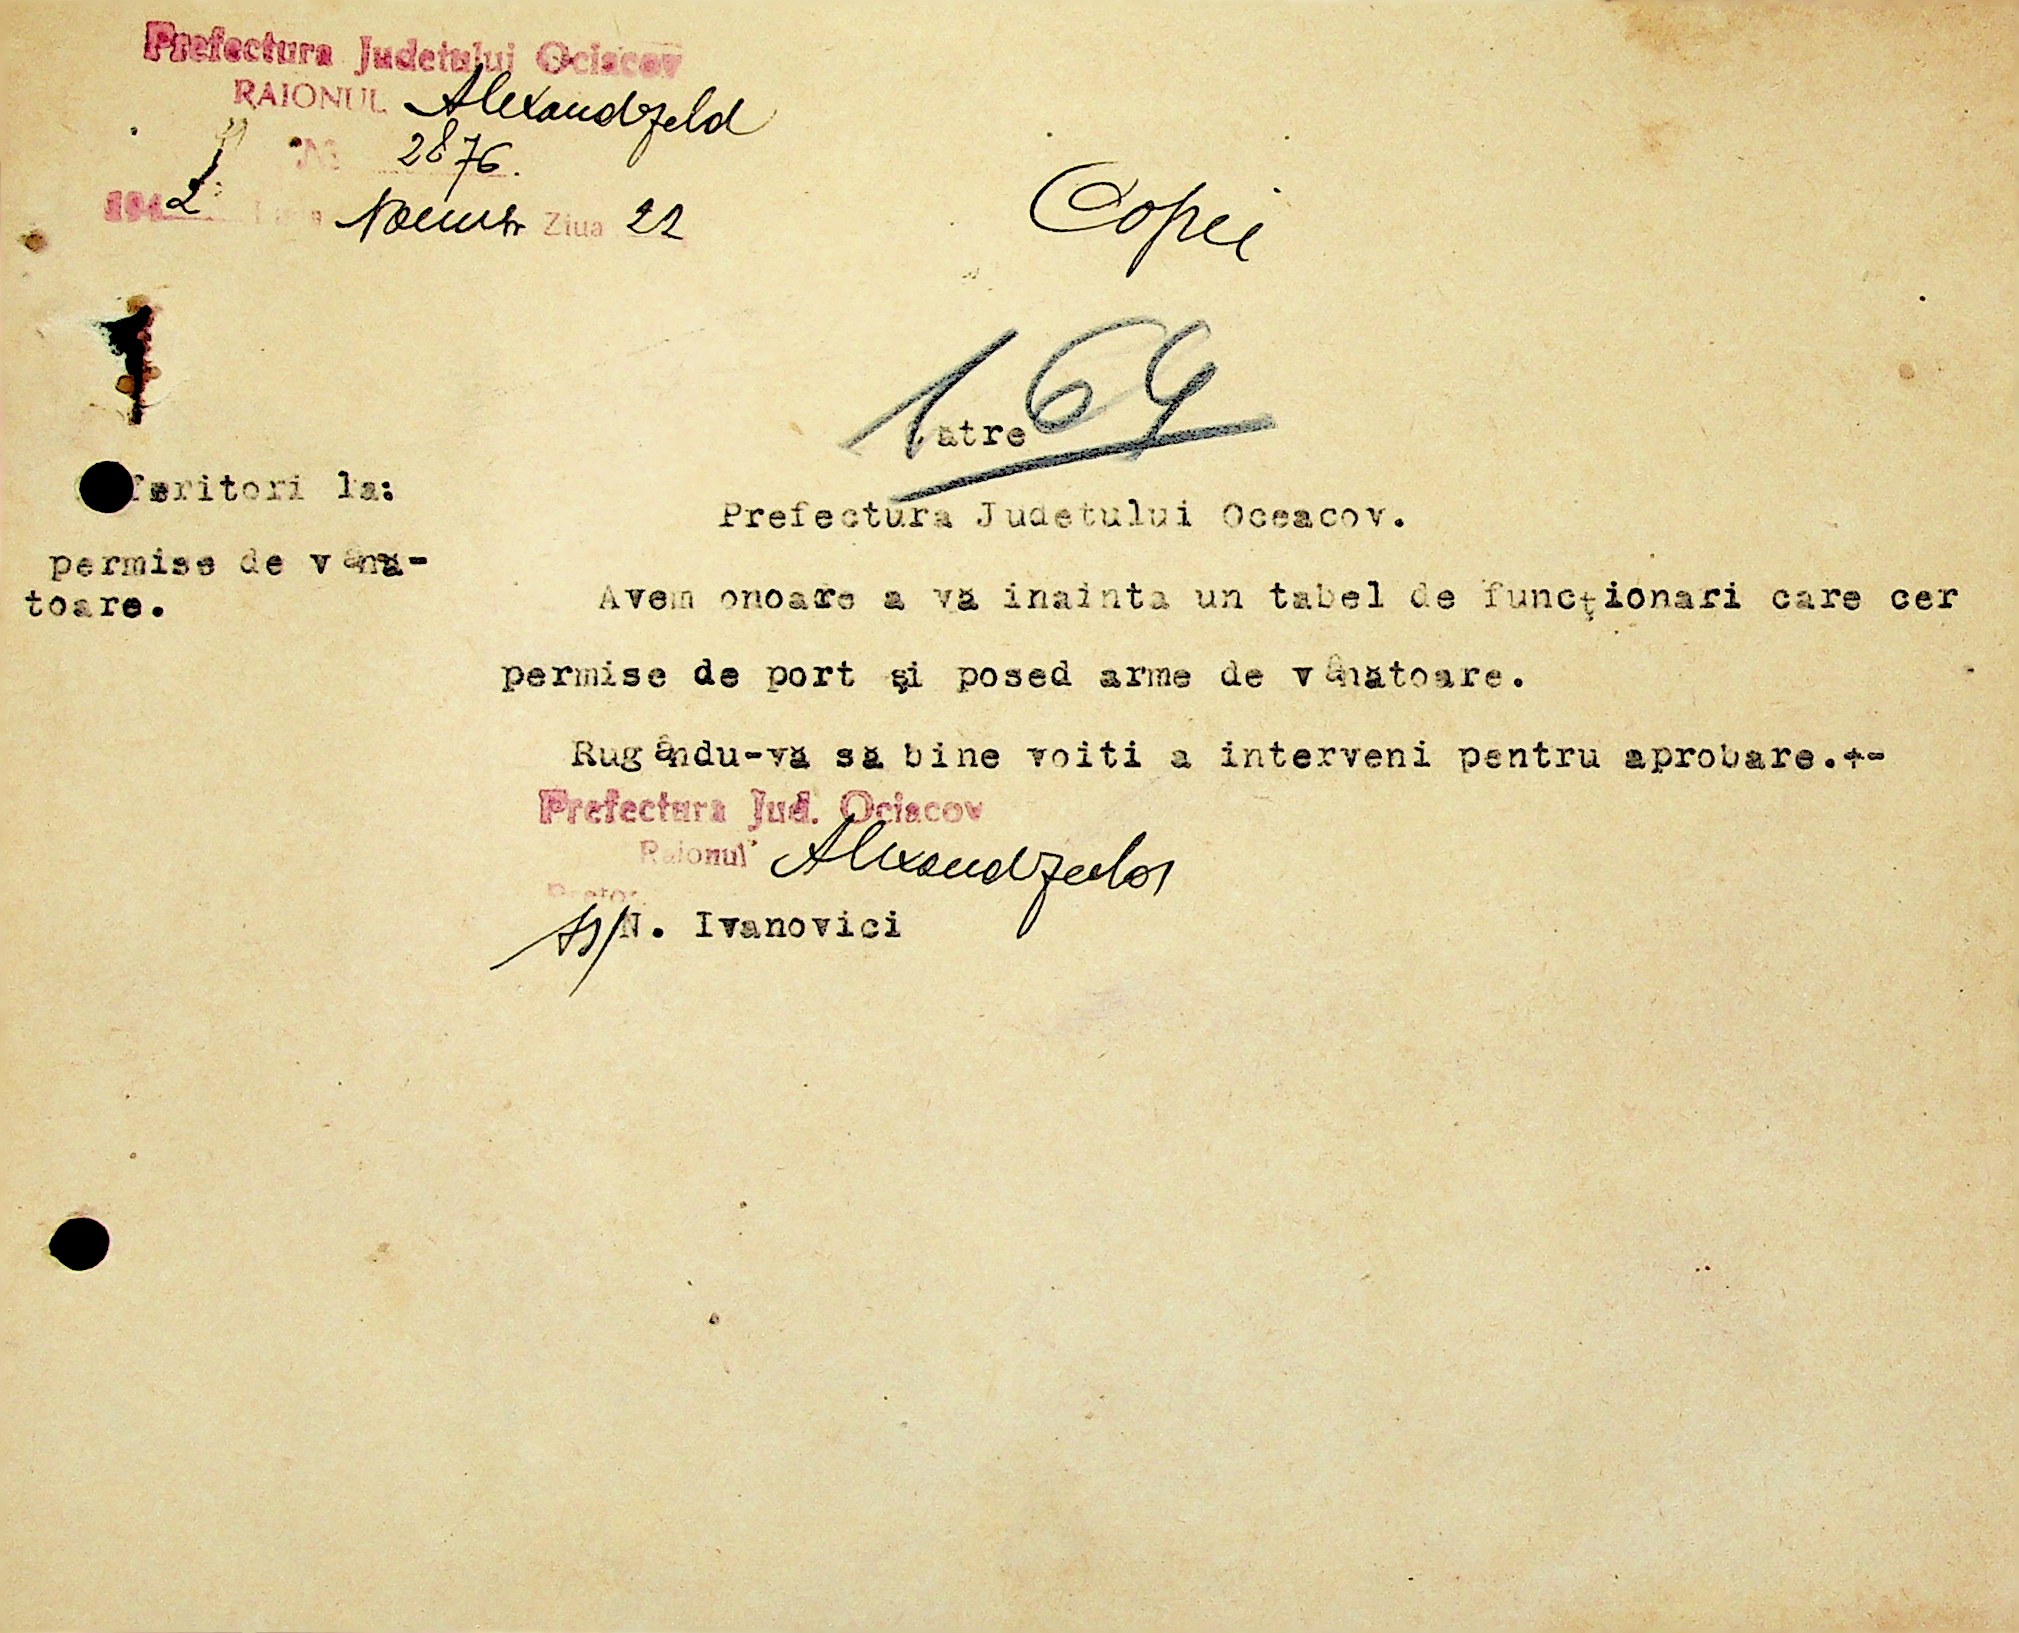 Prefectura Judetului Ociacov
RAIONUL Alexandrfeld
No 2876.
1942 Luna Noemvr Ziua 22
Copie
169
Catre
Prefectura Judetului Oceacov.
feritori la:
permise de vână-
toare.
Avem onoare a vă inainta un tabel de funcţionari care cer
permise de port şi posed arme de vânătoare.
Rugându-vă să bine voiti a interveni pentru aprobare.+-
Prefectura Jud. Ociacov
Raionul Alexandrfeld
Pretor
ss/N. Ivanovici